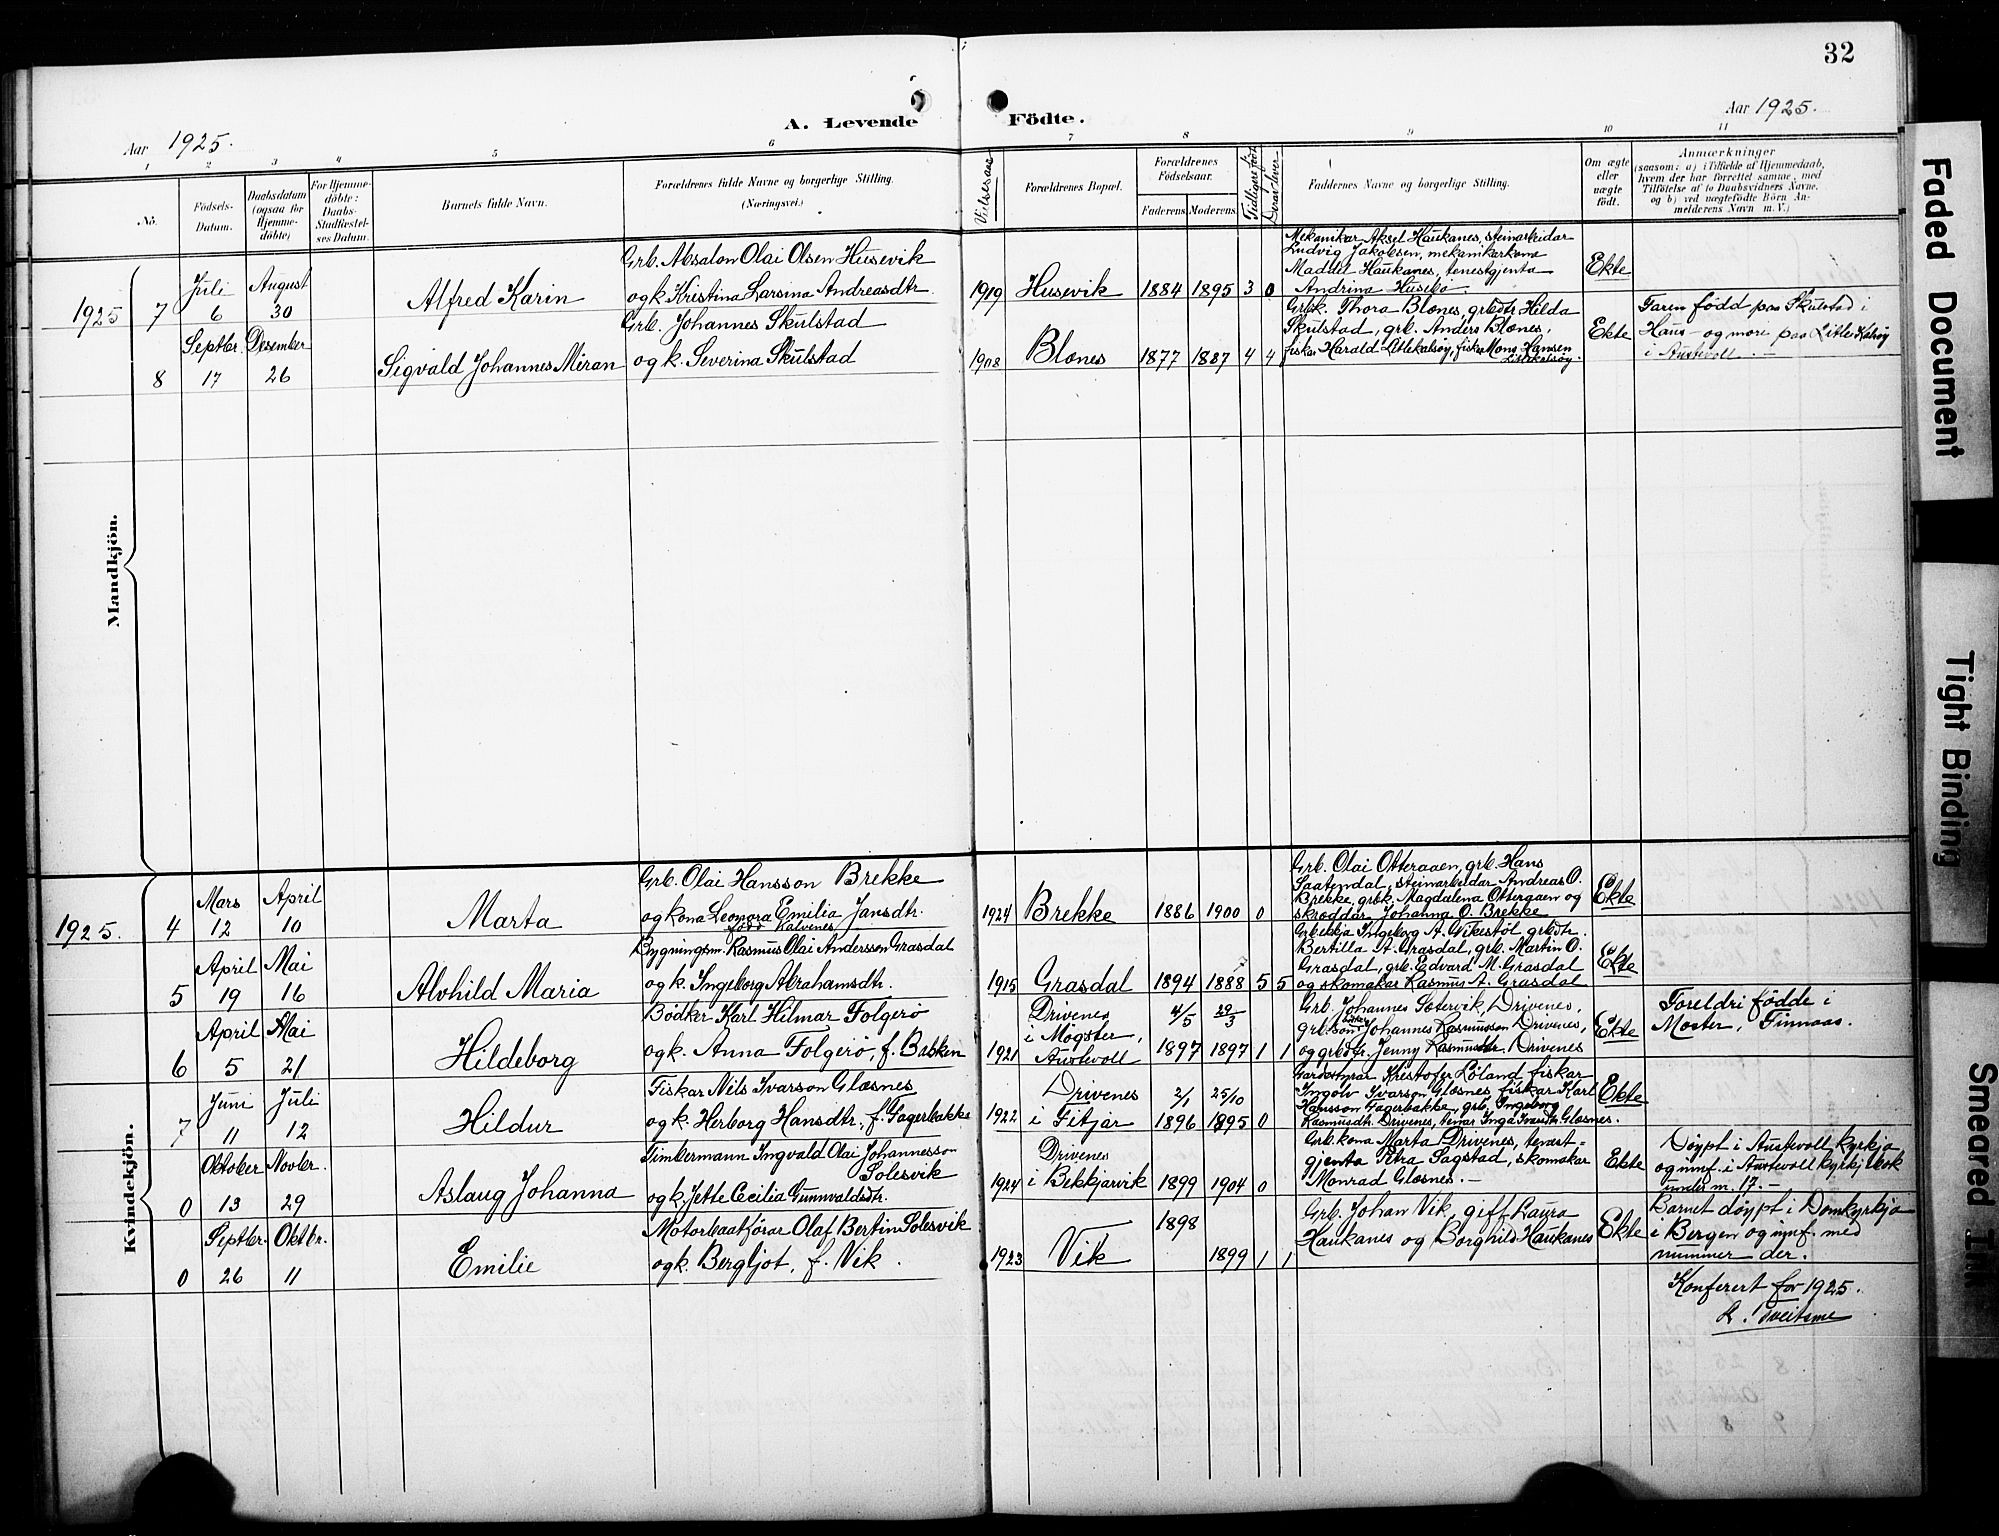 32
A. Levende Födte.
Aar 1925.
Aar 1925.
1 2 3 4 5 6 7 8 9 10 11
No.
Födsels-
Datum.
Daabsdatum
(ogsaa for
Hjemme-
döbte)
For Hjemme-
döbte:
Daabs-
Stadfæstel-
ses Datum.
Barnets fulde Navn.
Forældrenes fulde Navne og borgerlige Stilling.
(Næringsvei.)
Vielsesaar
Forældrenes Bopæl.
Forældrenes
Födselsaar.
Faderens
Moderens
Tidligere föd.
Faddernes Navne og borgerlige Stilling.
Om ægte
eller
uægte
födt.
Anmærkninger
(saasom: a) i Tilfælde af Hjemmedaab,
hvem der har forrettet samme, med
Tilföielse af to Daabsvidners Navne,
og b) ved uægtefödte Börn An-
melderens Navn m. V.)
Mandkjön.
1925 7
Juli
6
August
30
Alfred Karin
Grb. Absalon Olai Olsen Husevik
og k. Kristina Larsina Andreasdtr.
1919 Husevik 1884 1895 3 0
Mekanikar Aksel Haukanes, steinarbeidar
Ludvig Jakobsen, mekanikarkona
Maddel Haukanes, tenestgjenta
Andrina Husebø.
Ekte
8
Septbr.
17
Desember
26
Sigvald Johannes Miran
Grb. Johannes Skulstad
og k. Severina Skulstad
1908 Blones 1877 1887 4 4
Grbk. Thora Blones, grbdtr Hilda
Skulstad, grb. Anders Blones,
fiskar Harald Litlekalsøy, fiskar Mons Hansen
Litlekalsøy.
Ekte
Faren fødd paa Skulstad i
Haus - og mori paa Litle Kalsøy
i Austevoll. -
Kvindekjön.
1925. 4
Mars
12
April
10
Marta
Grb. Olai Hansson Brekke
og kona Leonora Emilia Jansdtr.
født Kalvenes
1924 Brekke 1886 1900 0
Grb. Olai Otteraaen, grb. Hans
Saatendal, steinarbeidar Andreas O.
Brekke, grbk. Magdalena Otteraaen og
skræddar Johanna O. Brekke
Ekte
5
April
19
Mai
16
Alvhild Maria
Bygningsm. Rasmus Olai Andersson Grasdal
og k. Ingeborg Abrahamsdtr.
1915 Grasdal 1894 1888 5 5
Grbekkja Ingeborg A. Vikestøl, grbdtr.
Bertilla A. Grasdal, grb. Martin O.
Grasdal, grb. Edvard M. Grasdal
og skomakar Rasmus A. Grasdal
Ekte
6
April
5
Mai
21
Hildeborg
Bødker Karl Hilmar Folgerø
og k. Anna Folgerø, f. Bakken
1921
Drivenes
i Møgster,
Austevoll
4/5
1897
29/3
1897
1 1
Grb. Johannes Sætervik, Drivenes,
grbson Johannes Rasmusson Drivenes,
og grbdtr. Jenny Rasmusdtr. Drivenes
Ekte
Foreldri fødde i
Moster, Finnaas.
7
Juni
11
Juli
12
Hildur
Fiskar Nils Ivarson Glæsnes
og k. Herborg Hansdtr., f. Fagerbakke
1922
Drivenes
i Fitjar
2/1
1896
25/10
1895
0
Gardbrukar Kristofer Løland, fiskar
Ingolv Ivarson Glæsnes, fiskar Karl
Hansson Fagerbakke, grb. Ingeborg
Rasmusdtr. Drivenes, tenar Inga Ivarsdtr. Glæsnes.
Ekte
0
Oktober
13
Novbr.
29
Aslaug Johanna
Timbermann Ingvald Olai Johannesson
Solesvik
og k. Jette Cecilia Gunnvaldsdtr.
1924
Drivenes
i Bekkjarvik
1899 1904 0
Grb. kona Marta Drivenes, tenest=
gjenta Petra Sagstad, skomakar
Monrad Glæsnes. -
Ekte
Døypt i Austevoll kyrkja
og innf. i Austevoll kyrkjebok
under nr. 17. -
0
Septbr.
26
Oktbr.
11
Emilie
Motorbaatførar Olaf Bertin Solesvik
og k. Bergljot, f. Vik.
1923 Vik 1898 1899 1 1
Grb. Johan Vik, gift Laura
Haukanes og Borghild Haukanes
Ekte
Barnet døypt i Domkyrkja
i Bergen og innf. med
nummer der.
Konferert for 1925.
Faded Document
Tight Binding
Smeared Ink